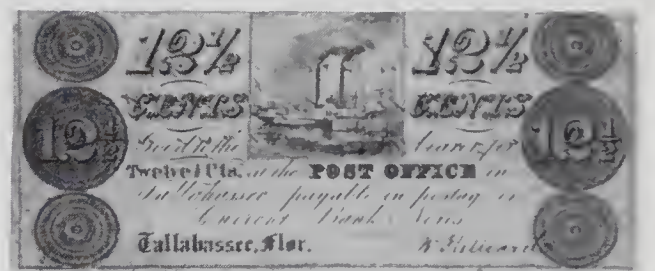 12½ 12½
CENTS CENTS
12½ 12½
Good to the bearer for
Twelve ½ Cts. at the POST OFFICE in
Tallahassee payable in postag or
Current Bank
Tallahassee, Flor.